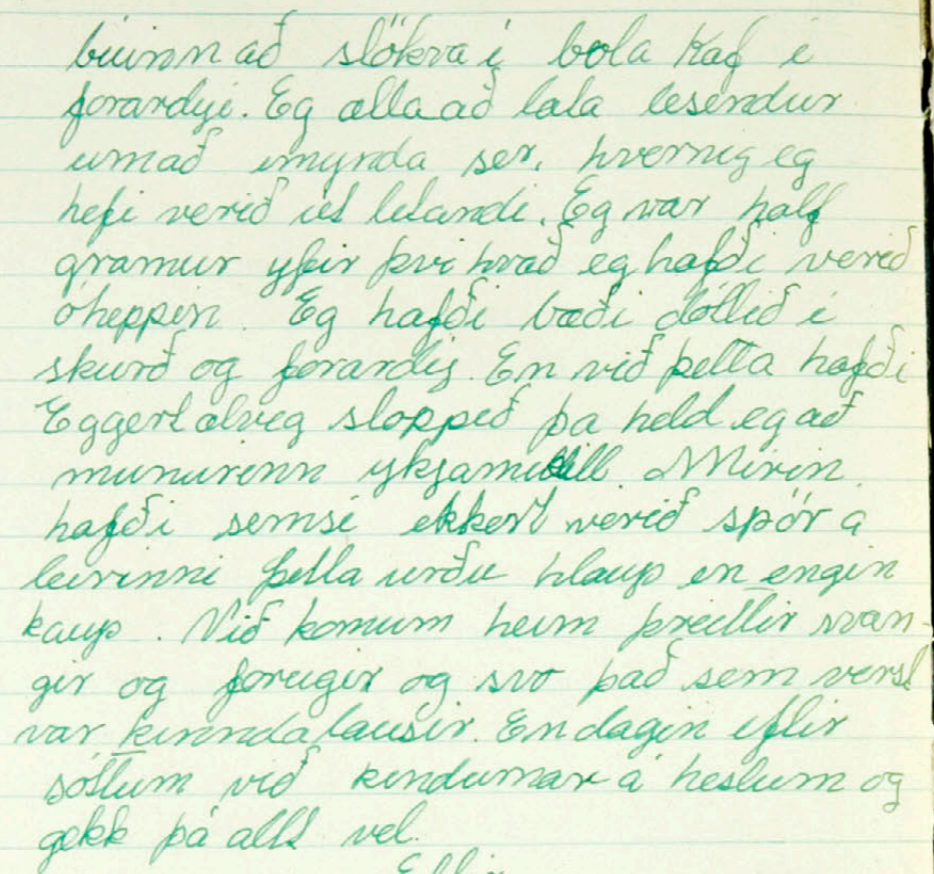 búinn að slökva í bola kaf í
forardýi. Eg ætla að láta lesendur
um að imynda ser, hvernig eg
hefi verið út lítandi. Eg var half
gramur yfir þvi hvað eg hafði verið
óheppin. Eg hafði bæði dottið í
skurð og forardíj. En við þetta hafði
Eggert alveg sloppið þa held eg að
munurinn ykjamikill. Mirin
hafði semsé ekkert verið spör á
leirinni þetta urðu hlaup en engin
kaup. Við komum heim þreittir svan-
gir og forugir og svo það sem verst
var kinnda lausir. En dagin eftir
sóttum við kindurnar á hestum og
gekk þá allt vel.